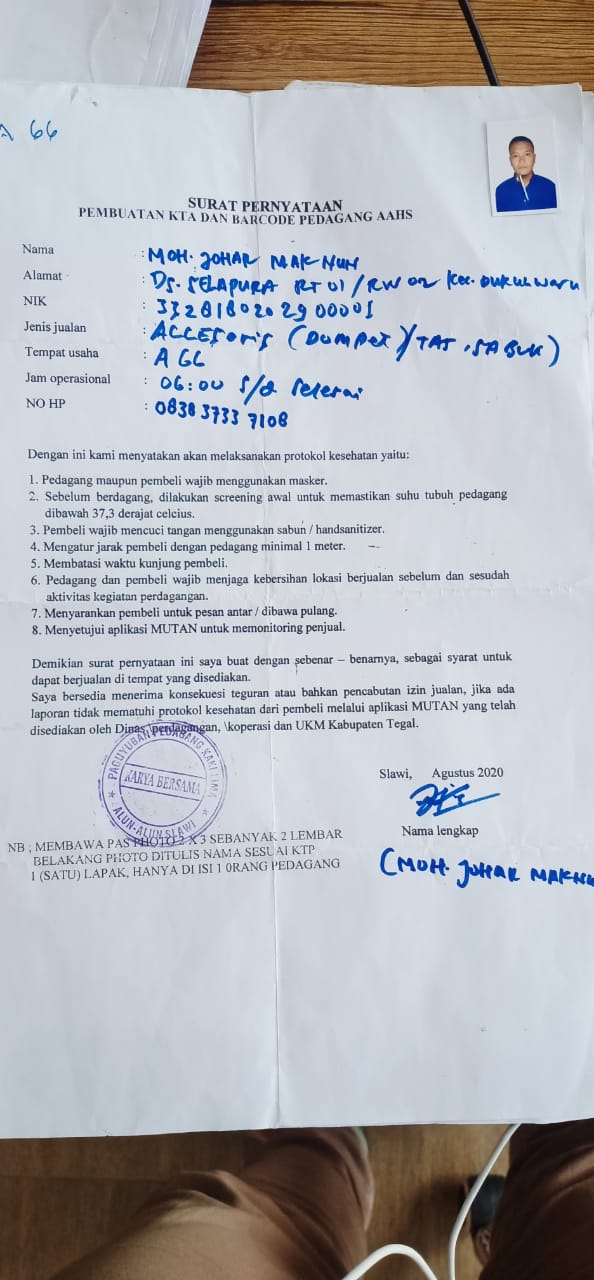 A 66
SURAT PERNYATAAN
PEMBUATAN KTA DAN BARCODE PEDAGANG AAHS
Nama : MOH. JOHAR MAKNUN
Alamat : Ds. SELAPURA RT 01/RW 02 Kec. DUKUHWARU
NIK :
Jenis jualan : ACCESORIS (DOMPET)/TAS, SABUK)
Tempat usaha : A 66
Jam operasional : 06:00 s/d selesai
NO HP : 0838 3733 7108
Dengan ini kami menyatakan akan melaksanakan protokol kesehatan yaitu:
1. Pedagang maupun pembeli wajib menggunakan masker.
2. Sebelum berdagang, dilakukan screening awal untuk memastikan suhu tubuh pedagang
dibawah 37,3 derajat celcius.
3. Pembeli wajib mencuci tangan menggunakan sabun / handsanitizer.
4. Mengatur jarak pembeli dengan pedagang minimal 1 meter.
5. Membatasi waktu kunjung pembeli.
6. Pedagang dan pembeli wajib menjaga kebersihan lokasi berjualan sebelum dan sesudah
aktivitas kegiatan perdagangan.
7. Menyarankan pembeli untuk pesan antar / dibawa pulang.
8. Menyetujui aplikasi MUTAN untuk memonitoring penjual.
Demikian surat pernyataan ini saya buat dengan sebenar – benarnya, sebagai syarat untuk
dapat berjualan di tempat yang disediakan.
Saya bersedia menerima konsekuesi teguran atau bahkan pencabutan izin jualan, jika ada
laporan tidak mematuhi protokol kesehatan dari pembeli melalui aplikasi MUTAN yang telah
disediakan oleh Dinas \perdagangan, \koperasi dan UKM Kabupaten Tegal.
PAGUYUBAN PEDAGANG KAKI LIMA
KARYA BERSAMA
ALUN-ALUN SLAWI
Slawi, Agustus 2020
Nama lengkap
(MOH. JOHAR MAKNUN
NB ; MEMBAWA PAS PHOTO 2 X 3 SEBANYAK 2 LEMBAR
BELAKANG PHOTO DITULIS NAMA SESUAI KTP
1 (SATU) LAPAK, HANYA DI ISI 1 0RANG PEDAGANG